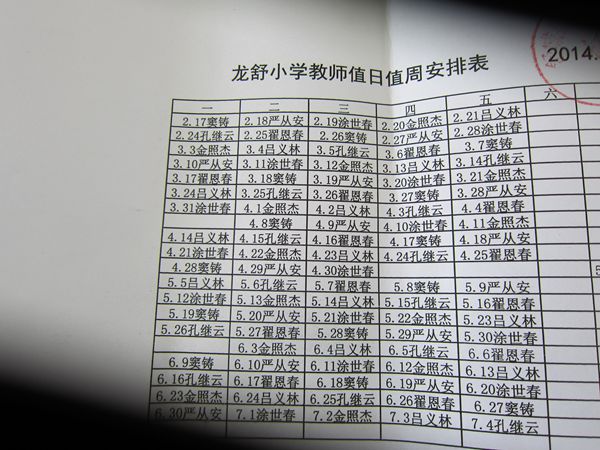 2014.
龙舒小学教师值日值周安排表
一 二 三 四 五 六
2.17窦铸 2.18严从安 2.19涂世春 2.20金照杰 2.21吕义林
2.24孔继云 2.25翟恩春 2.26窦铸 2.27严从安 2.28涂世春
3.3金照杰 3.4吕义林 3.5孔继云 3.6翟恩春 3.7窦铸
3.10严从安 3.11涂世春 3.12金照杰 3.13吕义林 3.14孔继云
3.17翟恩春 3.18窦铸 3.19严从安 3.20涂世春 3.21金照杰
3.24吕义林 3.25孔继云 3.26翟恩春 3.27窦铸 3.28严从安
3.31涂世春 4.1金照杰 4.2吕义林 4.3孔继云 4.4翟恩春
4.8窦铸 4.9严从安 4.10涂世春 4.11金照杰
4.14吕义林 4.15孔继云 4.16翟恩春 4.17窦铸 4.18严从安
4.21涂世春 4.22金照杰 4.23吕义林 4.24孔继云 4.25翟恩春
4.28窦铸 4.29严从安 4.30涂世春
5.5吕义林 5.6孔继云 5.7翟恩春 5.8窦铸 5.9严从安
5.12涂世春 5.13金照杰 5.14吕义林 5.15孔继云 5.16翟恩春
5.19窦铸 5.20严从安 5.21涂世春 5.22金照杰 5.23吕义林
5.26孔继云 5.27翟恩春 5.28窦铸 5.29严从安 5.30涂世春
6.3金照杰 6.4吕义林 6.5孔继云 6.6翟恩春
6.9窦铸 6.10严从安 6.11涂世春 6.12金照杰 6.13吕义林
6.16孔继云 6.17翟恩春 6.18窦铸 6.19严从安 6.20涂世春
6.23金照杰 6.24吕义林 6.25孔继云 6.26翟恩春 6.27窦铸
6.30严从安 7.1涂世春 7.2金照杰 7.3吕义林 7.4孔继云